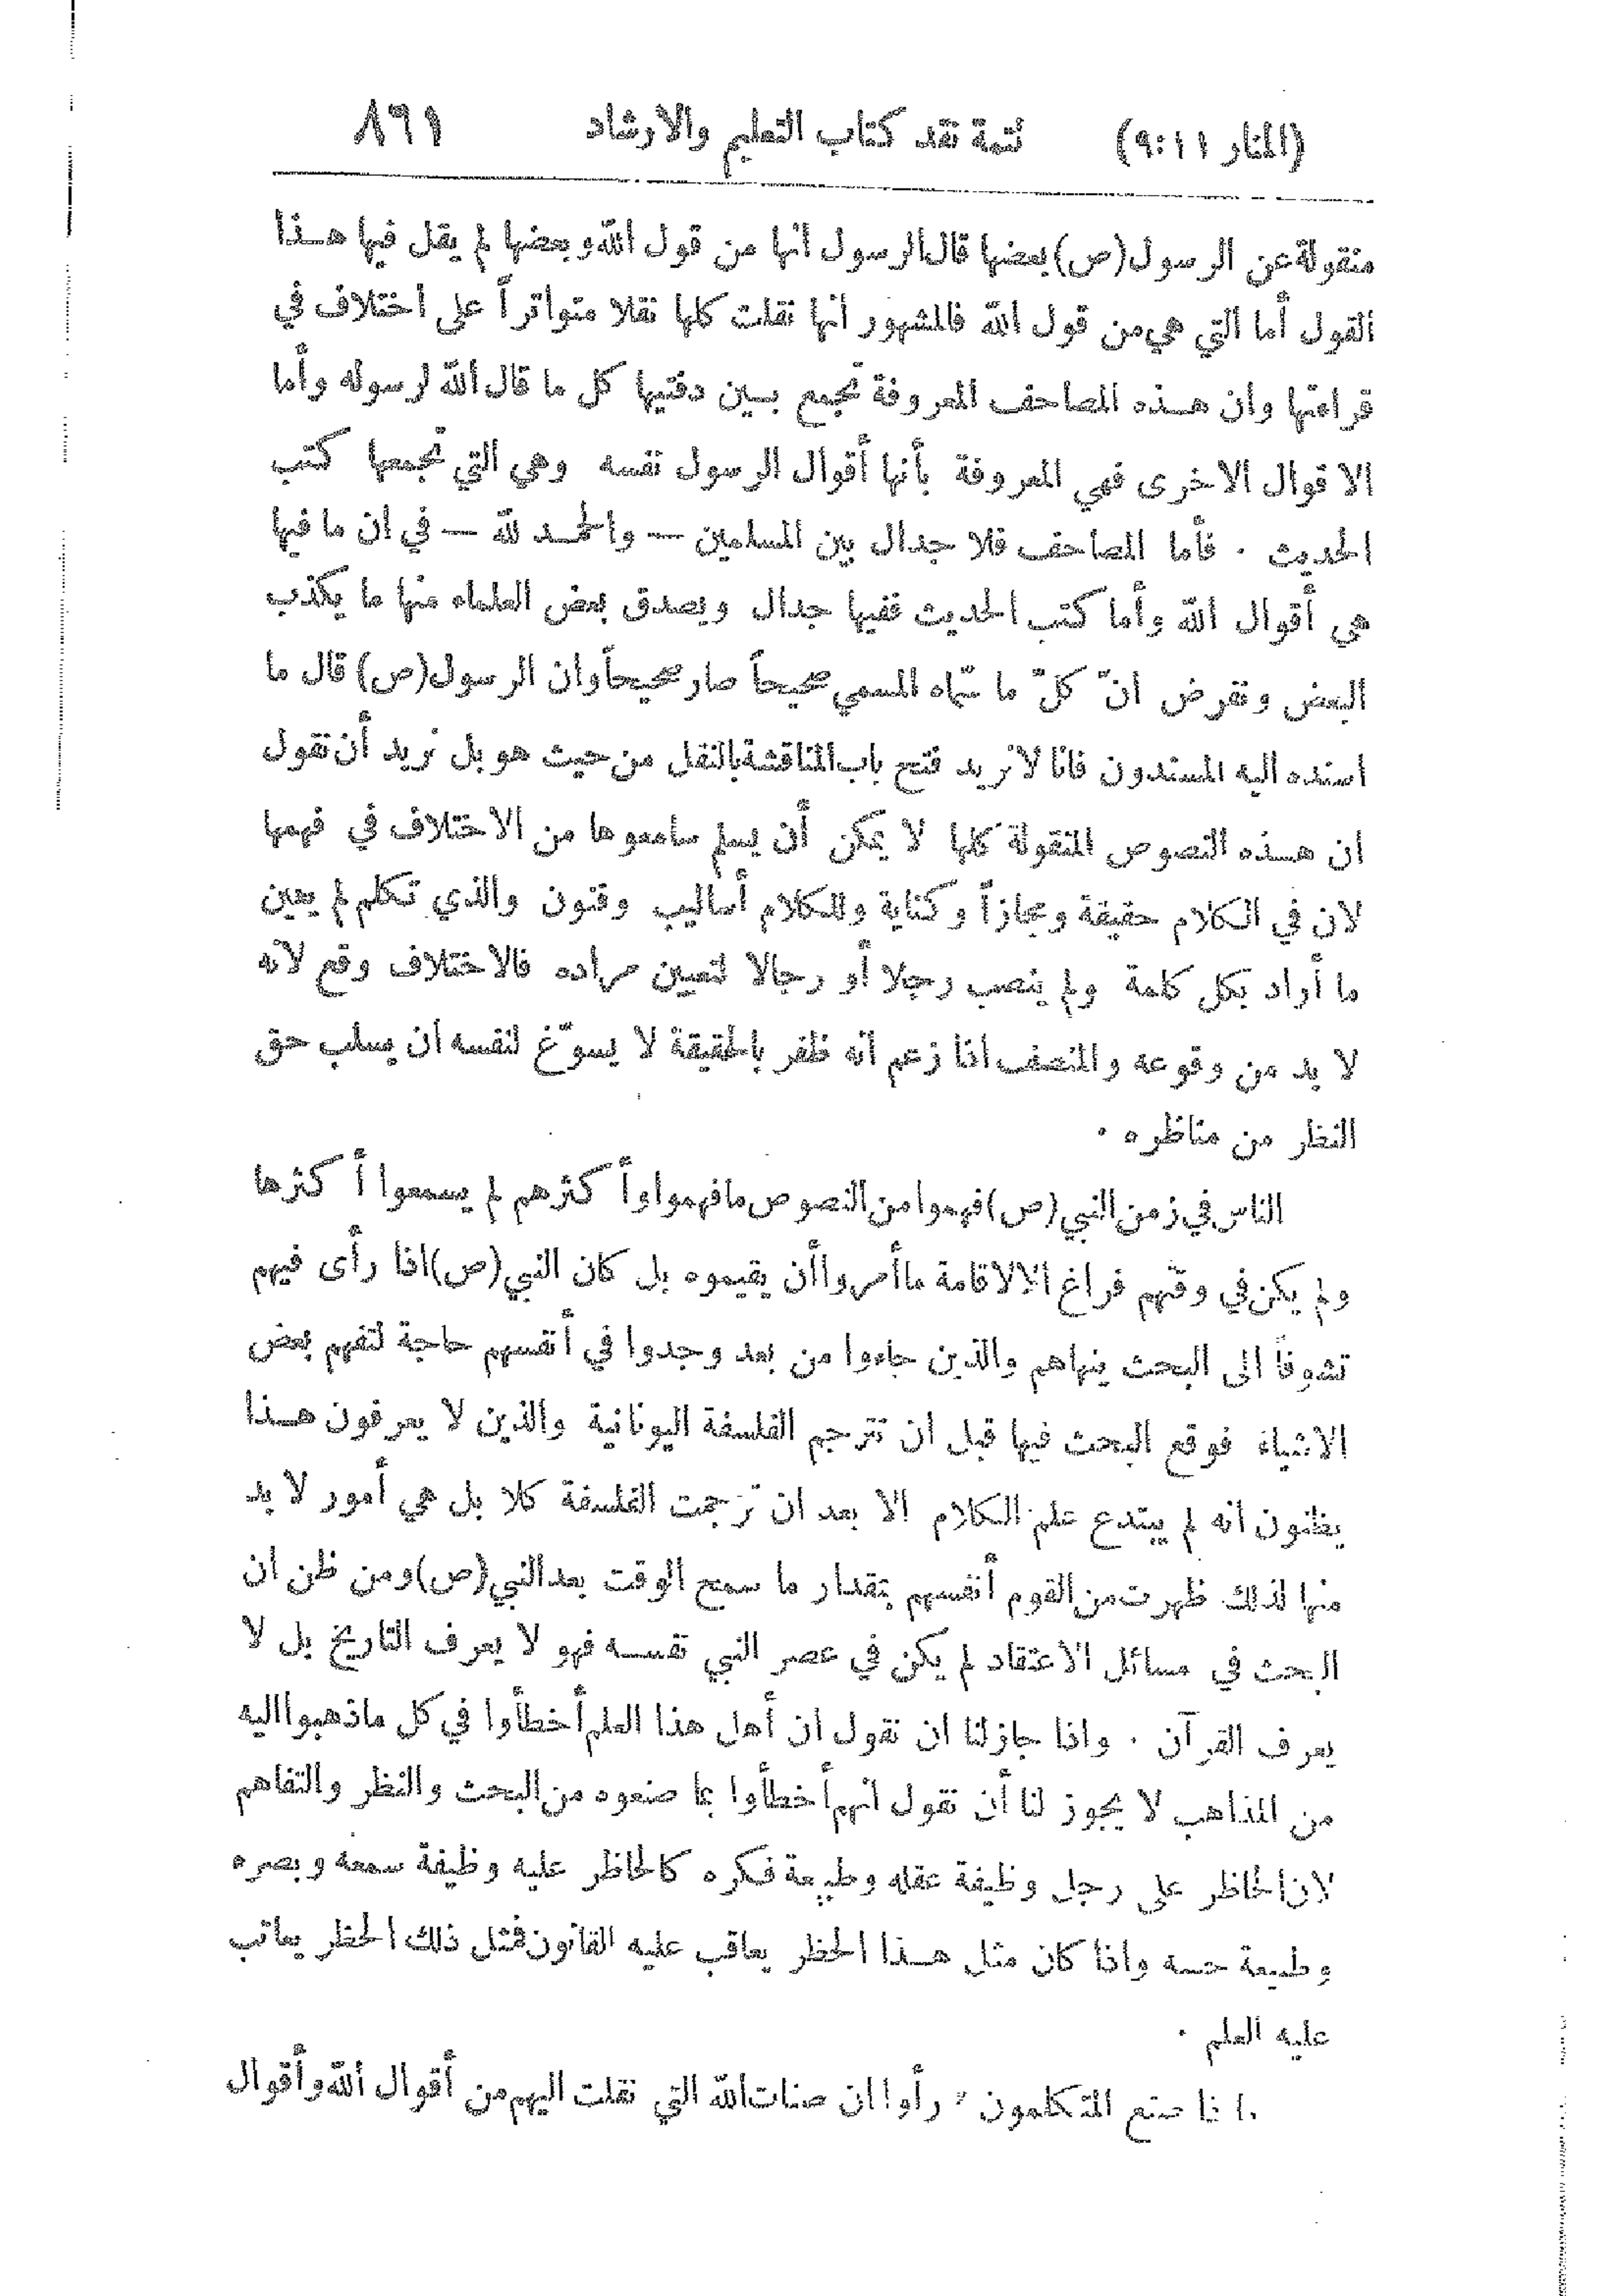 (المنار ٩:١١) تتمة نقد كتاب التعليم والارشاد ٨٩١
منقولة عن الرسول (ص) بعضها قال الرسول انها من قول الله وبعضها لم يقل فيها هـذا
القول أما التي هي من قول الله فالمشهور انها نقلت كلها نقلا متواتراً على اختلاف في
قراءتها وان هـذه المصاحف المعروفة تجمع بـين دفتيها كل ما قال الله لرسوله وأما
الاقوال الاخرى فهي المعروفة بأنها أقوال الرسول نفسه وهي التي تجمعها كتب
الحديث . فأما المصاحف فلا جدال بين المسلمين — والحمـد لله — في ان ما فيها
هي أقوال الله وأما كتب الحديث ففيها جدال ويصدق بعض العلماء منها ما يكذب
البعض ونفرض انّ كلّ ما سمّاه المسمي صحيحاً صار صحيحاً وان الرسول (ص) قال ما
اسنده اليه المسندون فانا لا نريد فتح باب المناقشة بالنقل من حيث هو بل نريد أن نقول
ان هـذه النصوص المنقولة كلها لا يمكن أن يسلم سامعوها من الاختلاف في فهمها
لان في الكلام حقيقة ومجازاً وكناية وللكلام أساليب وفنون والذي تكلم لم يعين
ما أراد بكل كلمة ولم ينصب رجلا أو رجالا لتعيين مراده فالاختلاف وقع لأنه
لا بد من وقوعه والمنصف اذا زعم انه ظفر بالحقيقة لا يسوّغ لنفسه ان يسلب حق
النظر من مناظره .
الناس في زمن النبي (ص) فهموا من النصوص ما فهموا وأكثرهم لم يسمعوا أكثرها
ولم يكن في وقتهم فراغ الا لاقامة ما أمروا أن يقيموه بل كان النبي (ص) اذا رأى فيهم
تشوفاً الى البحث ينهاهم والذين جاءوا من بعد وجدوا في أنفسهم حاجة لتفهم بعض
الاشياء فوقع البحث فيها قبل ان تترجم الفلسفة اليونانية والذين لا يعرفون هـذا
يظنون انه لم يبتدع علم الكلام الا بعد ان ترجمت الفلسفة كلا بل هي أمور لا بد
منها لذلك ظهرت من القوم أنفسهم بمقدار ما سمح الوقت بعد النبي (ص) ومن ظن ان
البحث في مسائل الاعتقاد لم يكن في عصر النبي نفسـه فهو لا يعرف التاريخ بل لا
يعرف القرآن . واذا جاز لنا ان نقول ان أهل هذا العلم أخطأوا في كل ما ذهبوا اليه
من المذاهب لا يجوز لنا أن نقول انهم أخطأوا بما صنعوه من البحث والنظر والتفاهم
لان الحاظر على رجل وظيفة عقله وطبيعة فكره كالحاظر عليه وظيفة سمعه وبصره
وطبيعة حسه واذا كان مثل هـذا الحظر يعاقب عليه القانون فمثل ذلك الحظر يعاتب
عليه العلم .
ماذا صنع المتكلمون ؟ رأوا ان صفات الله التي نقلت اليهم من أقوال الله وأقوال